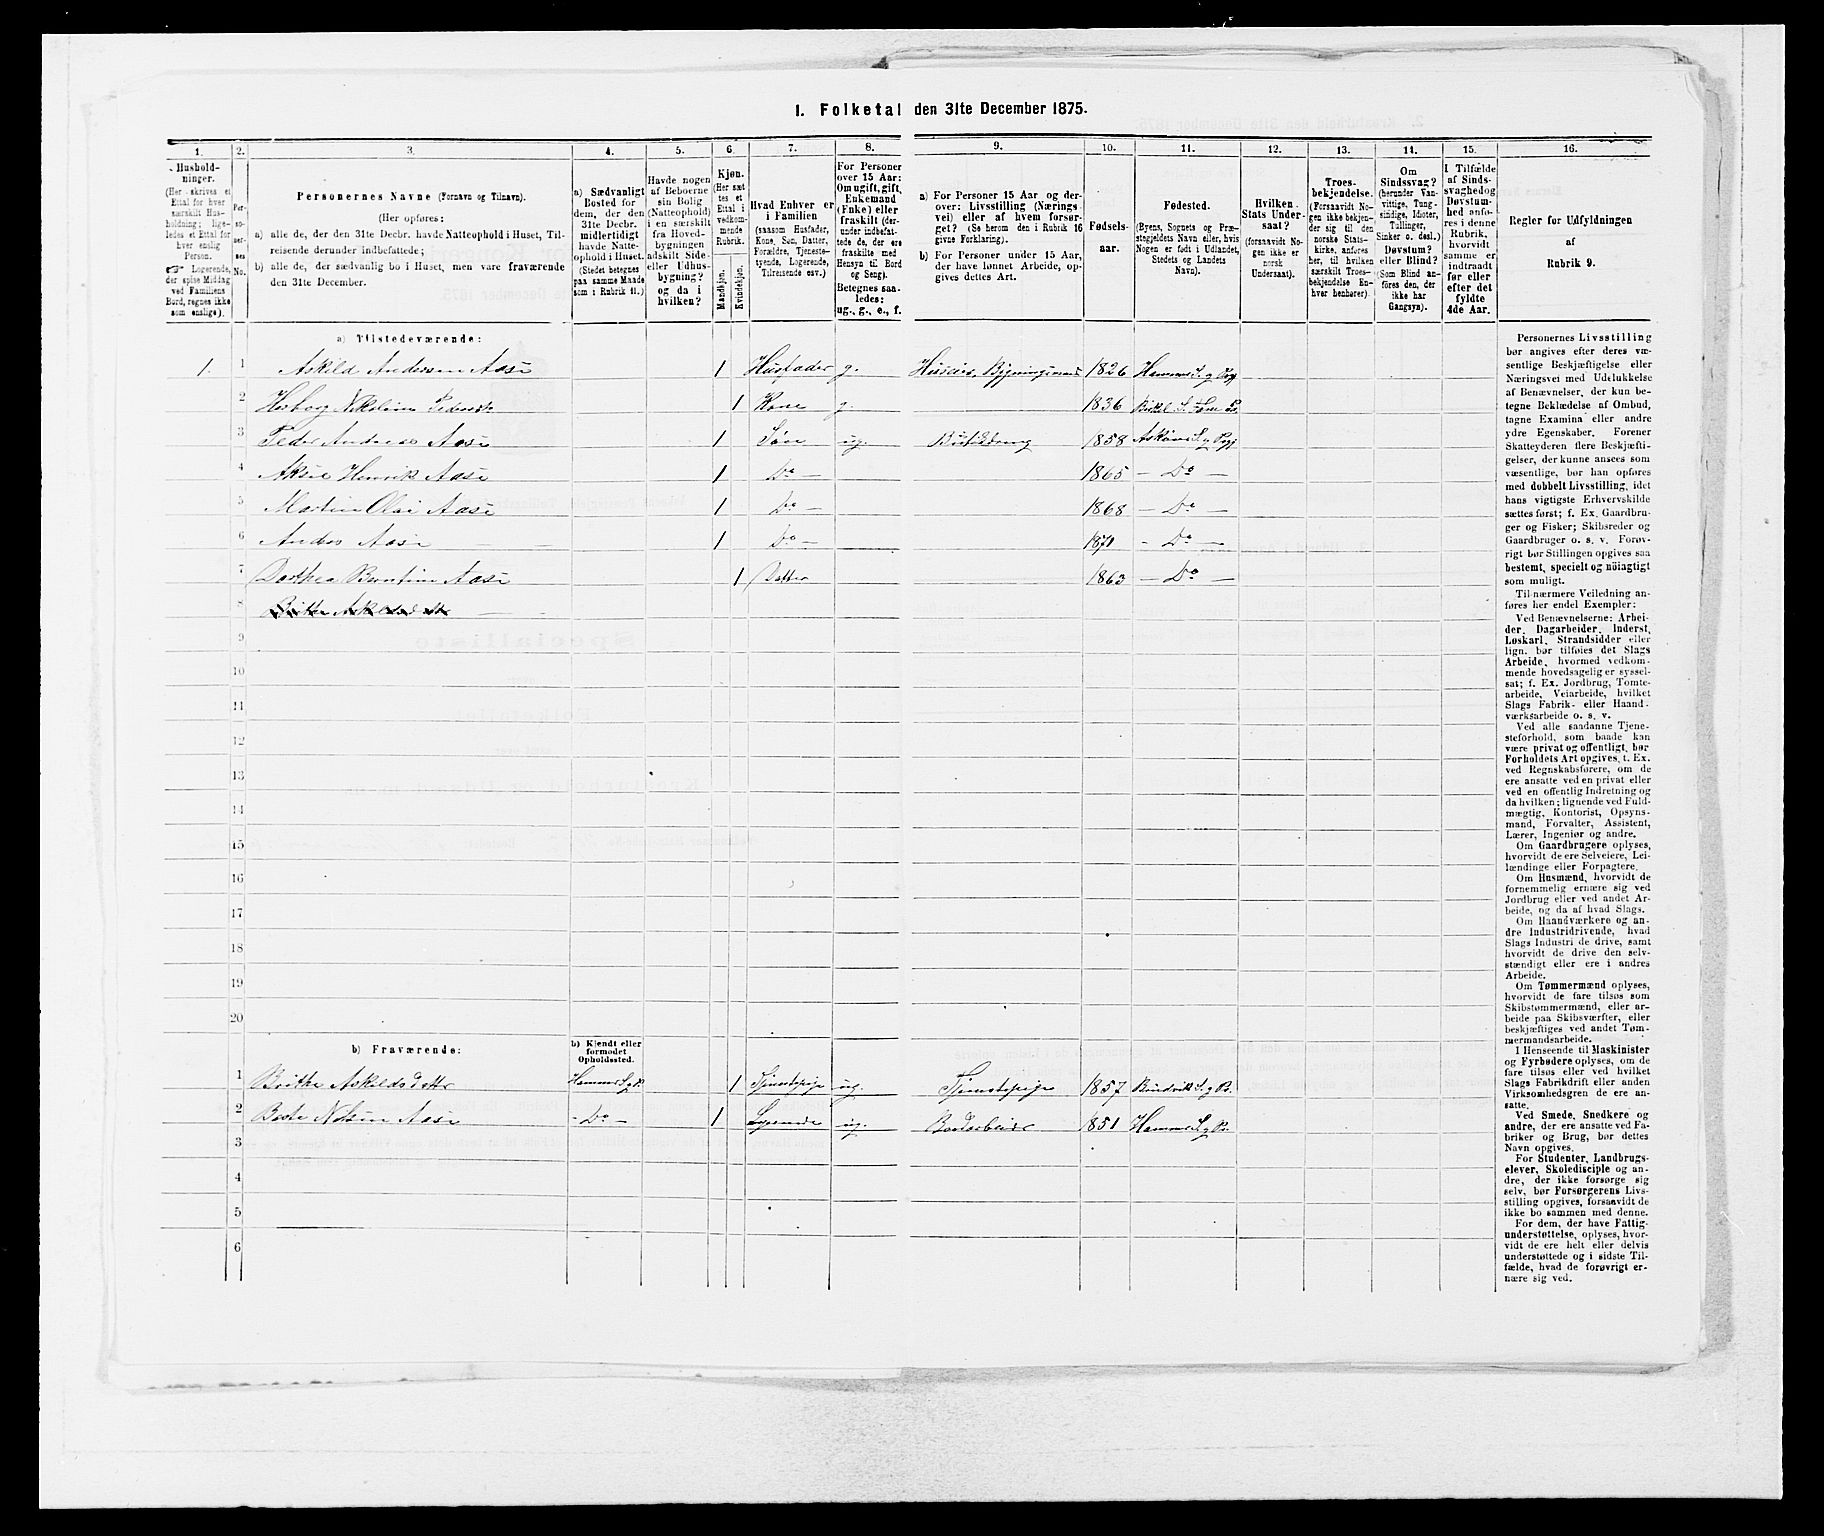 1. Folketal den 31te December 1875.
1.
2.
3.
4.
5.
6.
7.
8.
9.
10.
11.
12.
13.
14.
15.
16.
Hushold-
ninger.
(Her skrives et
Ettal for hver
særskilt Hus-
holdning; lige-
ledes et Ettal for
hver enslig
Person.
☞ Logerende,
der spise Middag
ved Familiens
Bord, regnes ikke
som enslige).
Per-
so-
ner-
nes
No.
Personernes Navne (Fornavn og Tilnavn).
(Her opføres:
a) alle de, der den 31te Decbr. havde Natteophold i Huset, Til-
reisende derunder indbefattede;
b) alle de, der sædvanlig bo i Huset, men vare fraværende
den 31te December.
a) Sædvanligt
Bosted for
dem, der den
31te Decbr.
midlertidigt
havde Natte-
ophold i Huset.
(Stedet betegnes
paa samme Maade
som i Rubrik 11.)
Havde nogen
af Beboerne
sin Bolig
(Natteophold)
i en særskilt
fra Hoved-
bygningen
adskilt Side-
eller Udhus-
bygning?
og da i
hvilken?
Kjøn.
(Her sæt-
tes et
Ettal i
vedkom-
mende
Rubrik.
Mandkjøn.
Kvindekjøn.
Hvad Enhver er
i Familien
(saasom Husfader,
Kone, Søn, Datter,
Forældre, Tjeneste-
tyende, Logerende,
Tilreisende osv.)
For Personer
over 15 Aar:
Om ugift, gift,
Enkemand
(Enke) eller
fraskilt (der-
under indbefat-
tede de, der ere
fraskilte med
Hensyn til Bord
og Seng).
Betegnes saa-
ledes:
ug., g., e., f.
a) For Personer 15 Aar og der-
over: Livsstilling (Nærings-
vei) eller af hvem forsør-
get? (Se herom den i Rubrik 16
givne Forklaring).
b) For Personer under 15 Aar,
der have lønnet Arbeide, op-
gives dettes Art.
Fødsels-
aar.
Fødested.
(Byens, Sognets og Præ-
stegjeldets Navn eller, hvis
Nogen er født i Udlandet,
Stedets og Landets
Navn).
Hvilken
Stats Under-
saat?
(forsaavidt No-
gen ikke er
norsk
Undersaat).
Troes-
bekjendelse.
(Forsaavidt No-
gen ikke bekjen-
der sig til den
norske Stats-
kirke, anføres
her, til hvilken
særskilt Troes-
bekjendelse En-
hver henhører).
Om
Sindssvag?
(herunder Van-
vittige, Tung-
sindige, Idioter,
Tullinger,
Sinker o. desl.)
Døvstum?
eller Blind?
(Som Blind an-
føres den, der
ikke har
Gangsyn).
I Tilfælde
af Sinds-
svaghed og
Døvstum-
hed anfø-
res i denne
Rubrik,
hvorvidt
samme er
indtraadt
før eller
efter det
fyldte
4de Aar.
Regler for Udfyldningen
af
Rubrik 9.
a) Tilstedeværende:
1. 1 Askild Andersen Aase 1 Husfader g. 1826 Hammer S. og Pgj
2 1 Kone g. 1836
3 Peder Andreas Aase 1 Søn ug. 1858 Askøens S. og Pgj
4 Aksel Henrik Aase 1 Do — 1865 — Do —
5 Martin Olai Aase 1 Do — 1868 — Do —
6 Anders Aase 1 Do — 1871 - Do —
7 Dorthea Berntine Aase 1 Datter 1863 — Do —
8 Brithe Askildsdatter
9
10
11
12
13
14
15
16
17
18
19
20
b) Fraværende:
b) Kjendt eller
formodet
Opholdssted.
1 Brithe Askildsdatter Hammer S. og P. 1 Tjenestepige ug. Tjenestepige 1857
2 1 Logerende ug. 1851 Hammer S. og Pr.
- Do —
3
4
5
6
Personernes Livsstilling
bør angives efter deres væ-
sentlige Beskjæftigelse eller
Næringsvei med Udelukkelse
af Benævnelser, der kun be-
tegne Beklædelse af Ombud,
tagne Examina eller andre
ydre Egenskaber. Forener
Skatteyderen flere Beskjæfti-
gelser, der kunne ansees som
væsentlige, bør han opføres
med dobbelt Livsstilling, idet
hans vigtigste Erhvervskilde
sættes først; f. Ex. Gaardbru-
ger og Fisker; Skibsreder og
Gaardbruger o. s. v. Forøv-
rigt bør Stillingen opgives saa
bestemt, specielt og nøiagtigt
som muligt.
Til nærmere Veiledning an-
føres her endel Exempler:
Ved Benævnelserne: Arbei-
der, Dagarbeider, Inderst,
Løskarl, Strandsidder eller
lign. bør tilføies det Slags
Arbeide, hvormed vedkom-
mende hovedsagelig er syssel-
sat; f. Ex. Jordbrug, Tomte-
arbeide, Veiarbeide, hvilket
Slags Fabrik- eller Haand-
værksarbeide o. s. v.
Ved alle saadanne Tjene-
steforhold, som baade kan
være privat og offentligt, bør
Forholdets Art opgives, t. Ex.
ved Regnskabsførere, om de
ere ansatte ved en privat eller
ved en offentlig Indretning og
da hvilken; lignende ved Fuld-
mægtig, Kontorist, Opsyns-
mand, Forvalter, Assistent,
Lærer, Ingeniør og andre.
Om Gaardbrugere oplyses,
hvorvidt de ere Selveiere, Lei-
lændinge eller Forpagtere.
Om Husmænd, hvorvidt de
fornemmelig ernære sig ved
Jordbrug eller ved andet Ar-
beide, og da af hvad Slags.
Om Haandværkere og an-
dre Industridrivende, hvad
Slags Industri de drive, samt
hvorvidt de drive den selv-
stændigt eller ere i andres
Arbeide.
Om Tømmermænd oplyses,
hvorvidt de fare tilsøs som
Skibstømmermænd, eller ar-
beide paa Skibsværfter, eller
beskjæftiges ved andet Tøm-
mermandsarbeide.
I Henseende til Maskinister
og Fyrbødere oplyses, om de
fare tilsøs eller ved hvilket
Slags Fabrikdrift eller anden
Virksomhedsgren de ere an-
satte.
Ved Smede, Snedkere og
andre, der ere ansatte ved Fa-
briker og Brug, bør dettes
Navn opgives.
For Studenter, Landbrugs-
elever, Skoledisciple og an-
dre, der ikke forsørge sig
selv, bør Forsørgerens Livs-
stilling opgives, forsaavidt de
ikke bo sammen med denne.
For dem, der have Fattig-
understøttelse, oplyses, hvor-
vidt de ere helt eller delvis
understøttede og i sidste Til-
fælde, hvad de forøvrigt er-
nære sig ved.